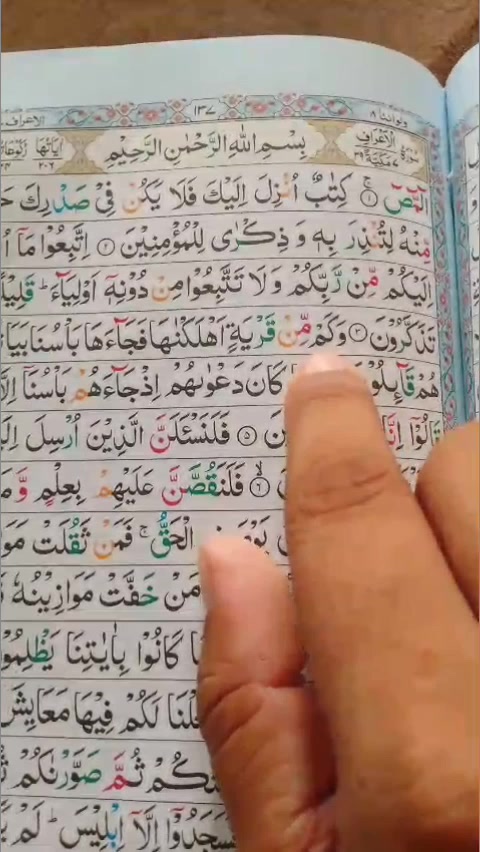 ولواننا ٨ ١٣٧ الاعراف
سورة الاعراف مكية ٣٩ بِسْمِ اللّٰهِ الرَّحْمٰنِ الرَّحِيْمِ اٰيَاتُهَا ٢٠٦
الٓمّٓصٓ ۚ﴿١﴾ كِتٰبٌ اُنْزِلَ اِلَيْكَ فَلَا يَكُنْ فِيْ صَدْرِكَ
مِّنْهُ لِتُنْذِرَ بِهٖ وَ ذِكْرٰى لِلْمُؤْمِنِيْنَ ﴿٢﴾ اِتَّبِعُوْا مَآ
اِلَيْكُمْ مِّنْ رَّبِّكُمْ وَ لَا تَتَّبِعُوْا مِنْ دُوْنِهٖٓ اَوْلِيَآءَ ؕ
تَذَكَّرُوْنَ ﴿٣﴾ وَكَمْ مِّنْ قَرْيَةٍ اَهْلَكْنٰهَا فَجَآءَهَا بَاْسُنَا
هُمْ قَآىِٕلُوْ كَانَ دَعْوٰىهُمْ اِذْ جَآءَهُمْ بَاْسُنَآ
قَالُوْٓا ﴿٥﴾ فَلَنَسْـَٔلَنَّ الَّذِيْنَ اُرْسِلَ
﴿٦﴾ فَلَنَقُصَّنَّ عَلَيْهِمْ بِعِلْمٍ وَّ
الْحَقُّ ۚ فَمَنْ ثَقُلَتْ
مَنْ خَفَّتْ مَوَازِيْنُهٗ
كَانُوْا بِاٰيٰتِنَا
لَكُمْ فِيْهَا مَعَايِشَ
ثُمَّ صَوَّرْنٰكُمْ
اِلَّآ اِبْلِيْسَ ؕ لَمْ